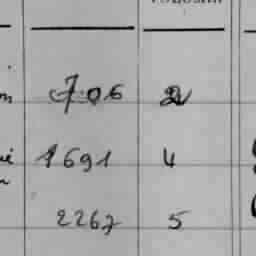 706 2
1691 4
2267 5